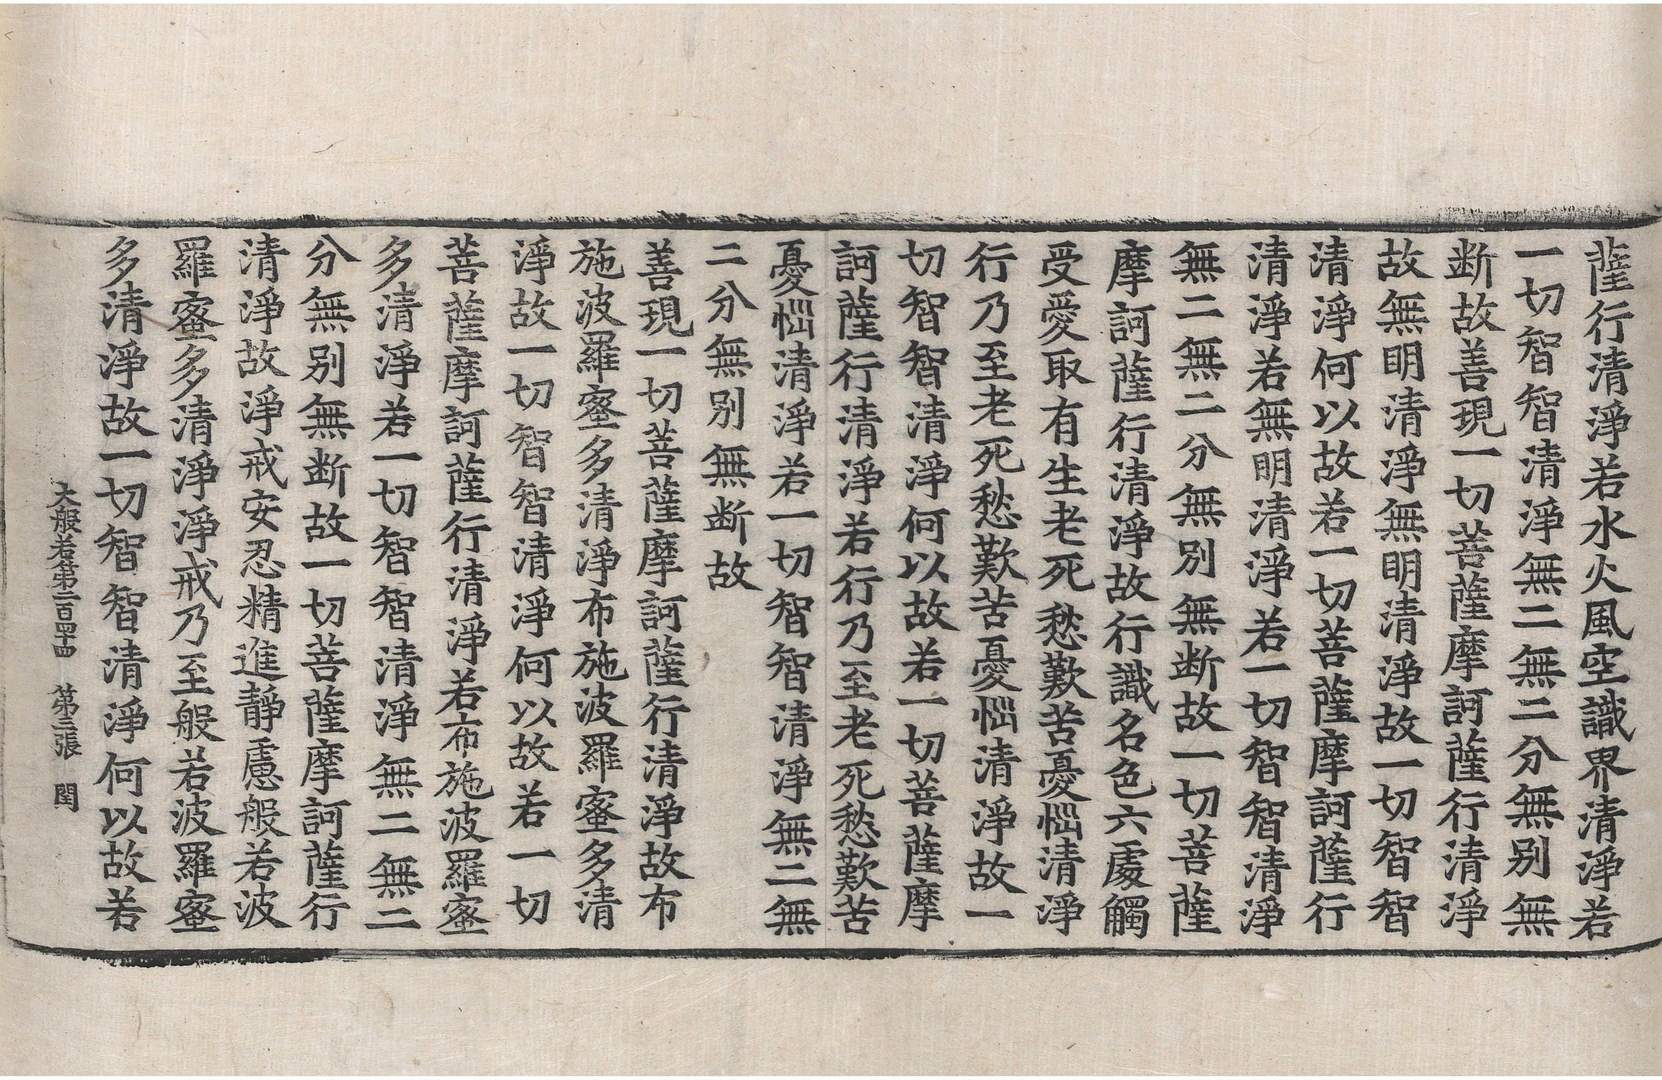 薩行清淨若水火風空識界清淨若
一切智智清淨無二無二分無别無
断故善現一切菩薩摩訶薩行清淨
故無明清淨無明清淨故一切智智
清淨何以故若一切菩薩摩訶薩行
清淨若無明清淨若一切智智清淨
無二無二分無别無断故一切菩薩
摩訶薩行清淨故行識名色六處觸
受愛取有生老死愁歎苦憂惱清淨
行乃至老死愁歎苦憂惱清淨故一
切智智清淨何以故若一切菩薩摩
訶薩行清淨若行乃至老死愁歎苦
憂惱清淨若一切智智清淨無二無
二分無别無断故
善現一切菩薩摩訶薩行清淨故布
施波羅蜜多清淨布施波羅蜜多清
淨故一切智智清淨何以故若一切
菩薩摩訶薩行清淨若布施波羅蜜
多清淨若一切智智清淨無二無二
分無别無断故一切菩薩摩訶薩行
清淨故淨戒安忍精進靜慮般若波
羅蜜多清淨淨戒乃至般若波羅蜜
多清淨故一切智智清淨何以故若
大般若第二百四十四 第三張 閏